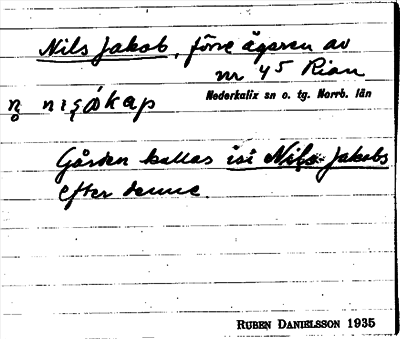 Nils Jakob, förre ägaren av
nr 45 Rian
Nederkalix sn o. tg. Norrb. län
Gården kallas isi Nils-Jakobs
efter denne.
RUBEN DANIELSSON 1935